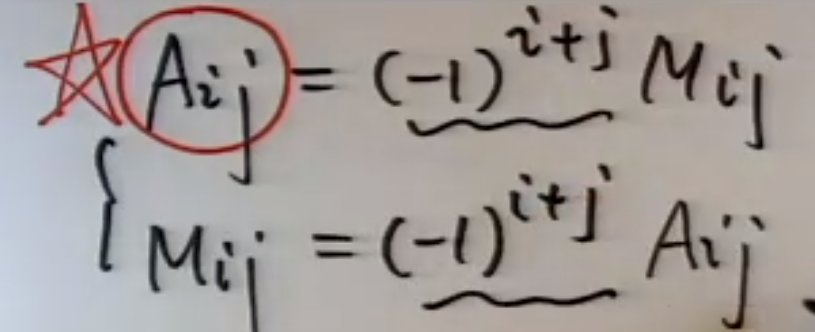 A_{ij} = (-1)^{i+j} M_{ij}
M_{ij} = (-1)^{i+j} A_{ij}